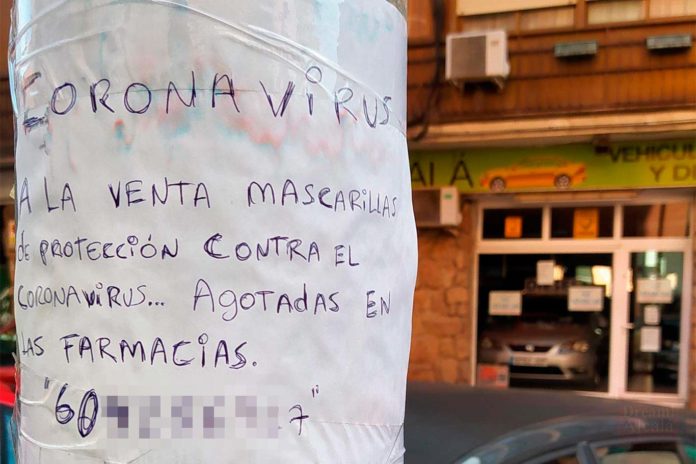 CORONAVIRUS
A LA VENTA MASCARILLAS
DE PROTECCIÓN CONTRA EL
CORONAVIRUS... AGOTADAS EN
LAS FARMACIAS.
"60 7"
ALÁ
VEHICUL
Y DE
Dream
Alcalá